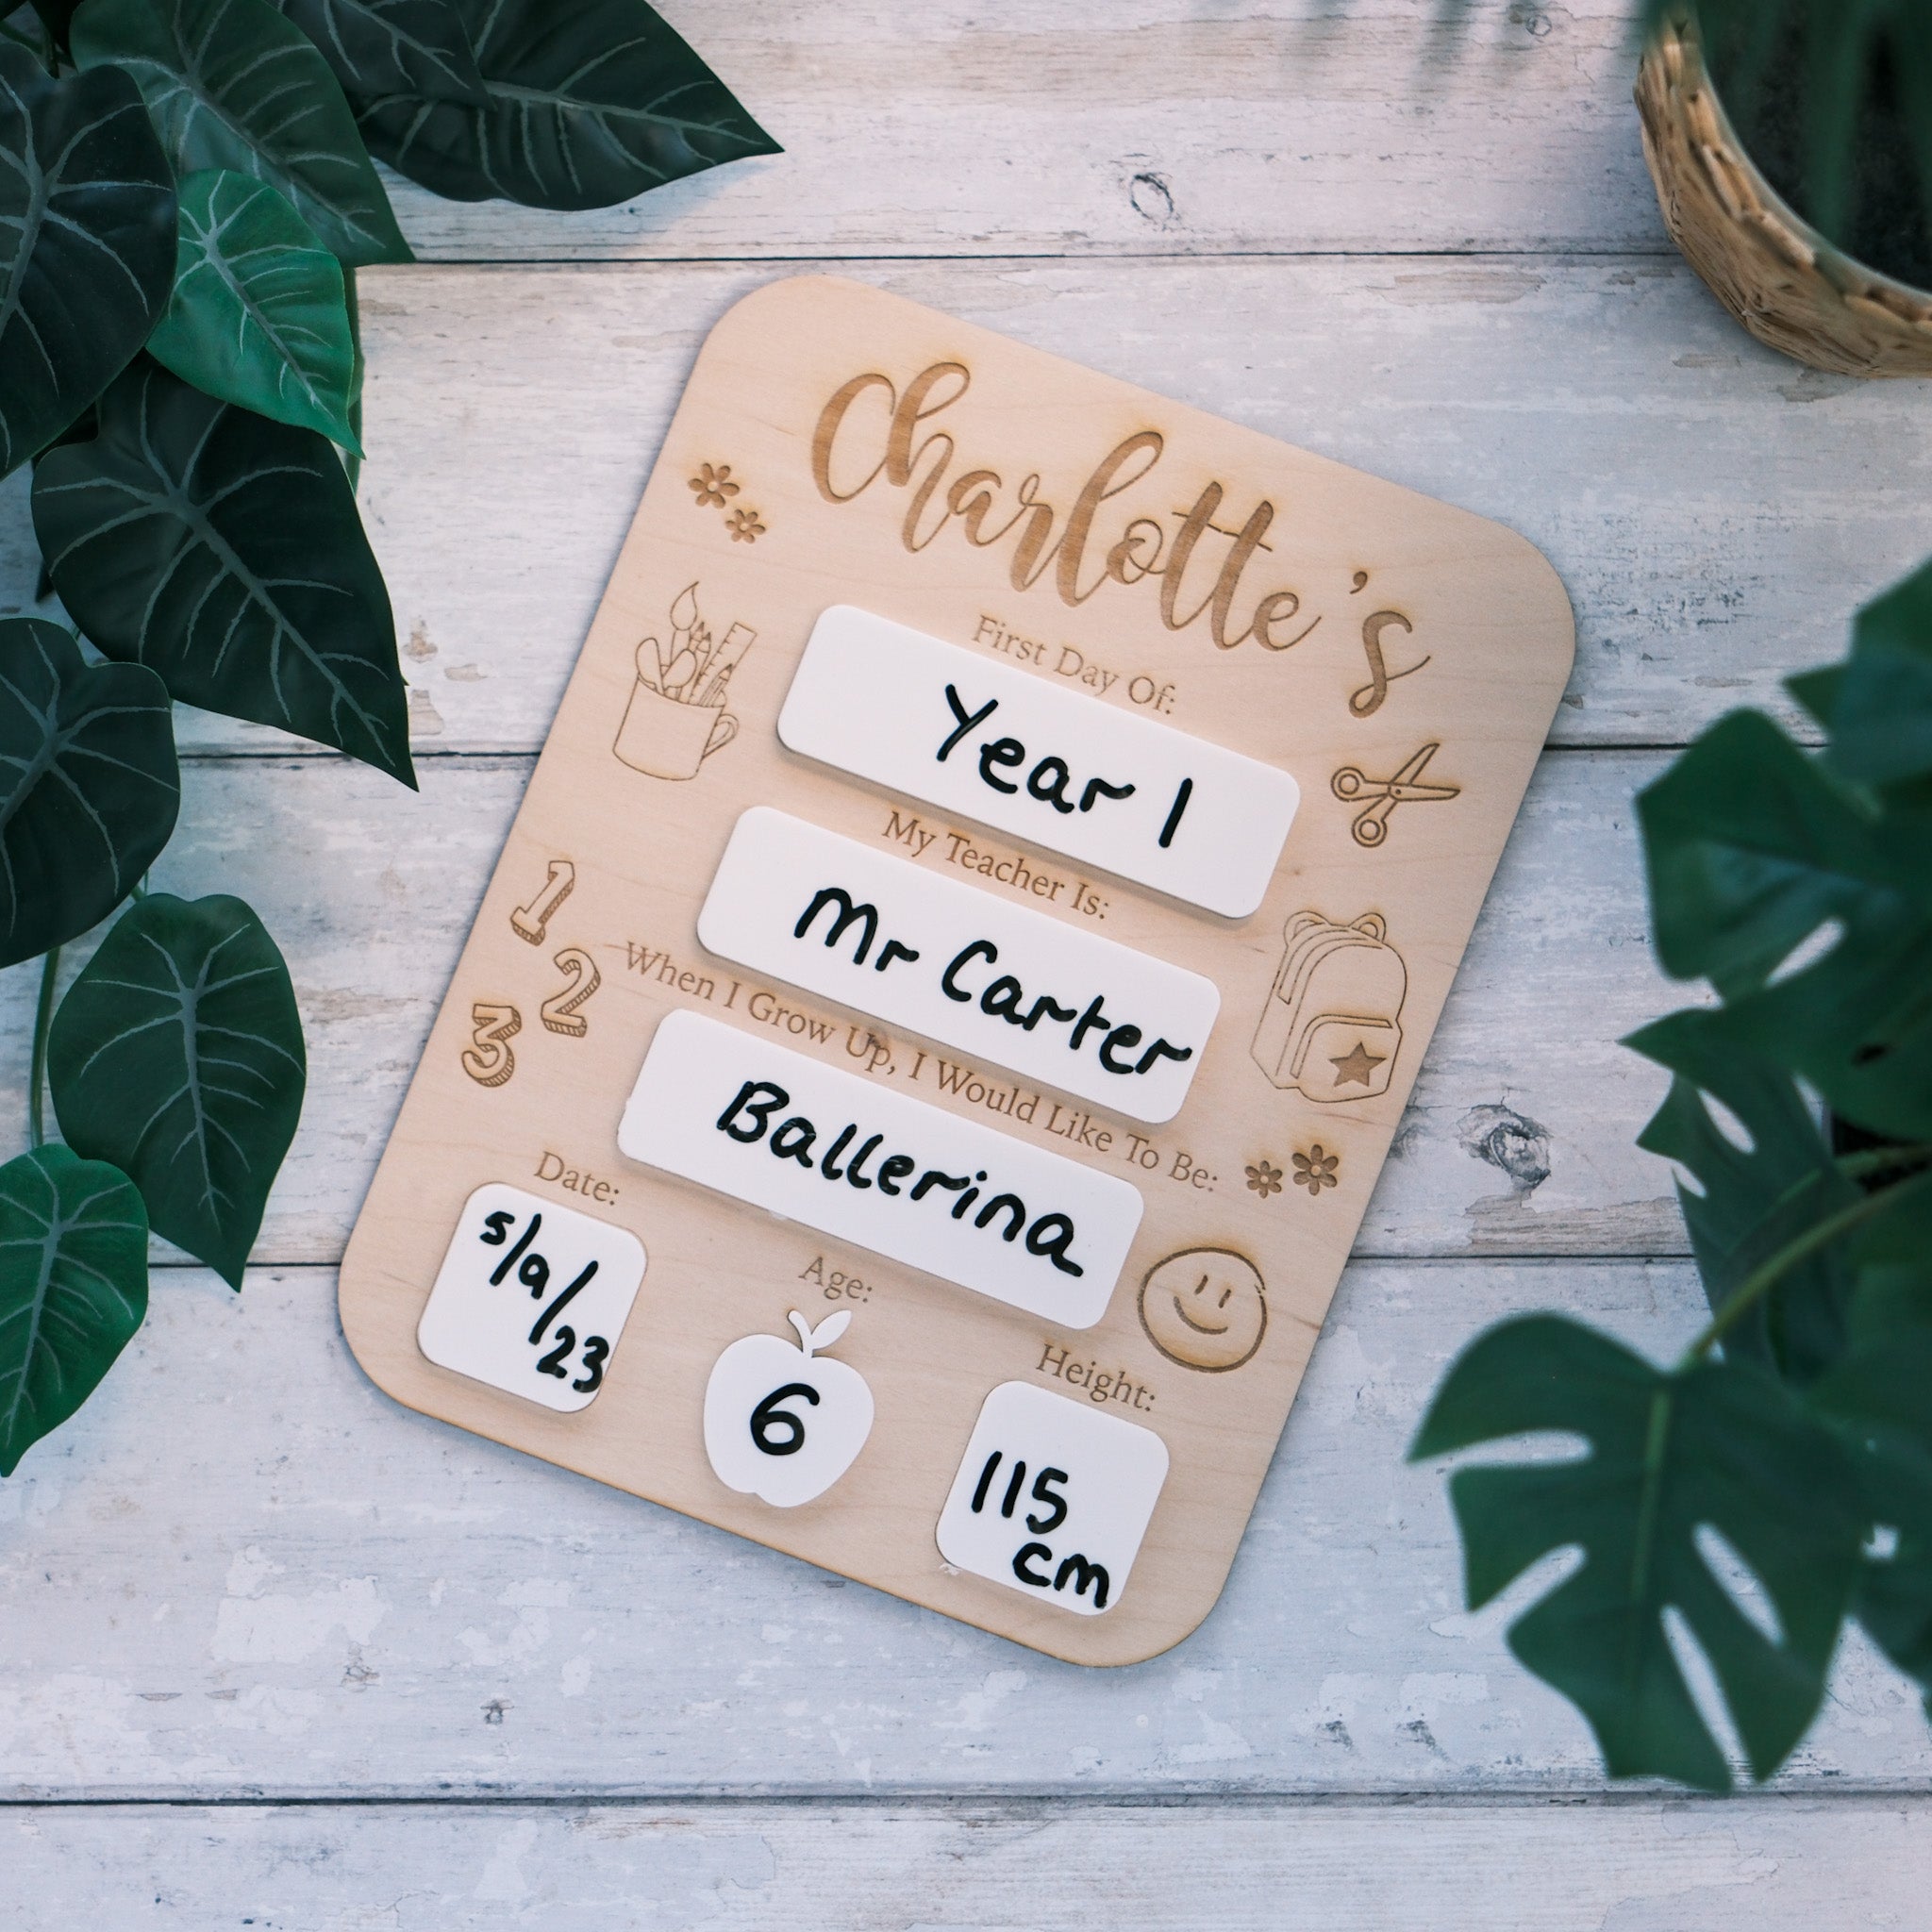 Charlotte's
First Day Of:
Year 1
My Teacher Is:
Mr Carter
When I Grow Up, I Would Like To Be:
Ballerina
1
2
3
Date:
5/9/23
Age:
6
Height:
115
cm